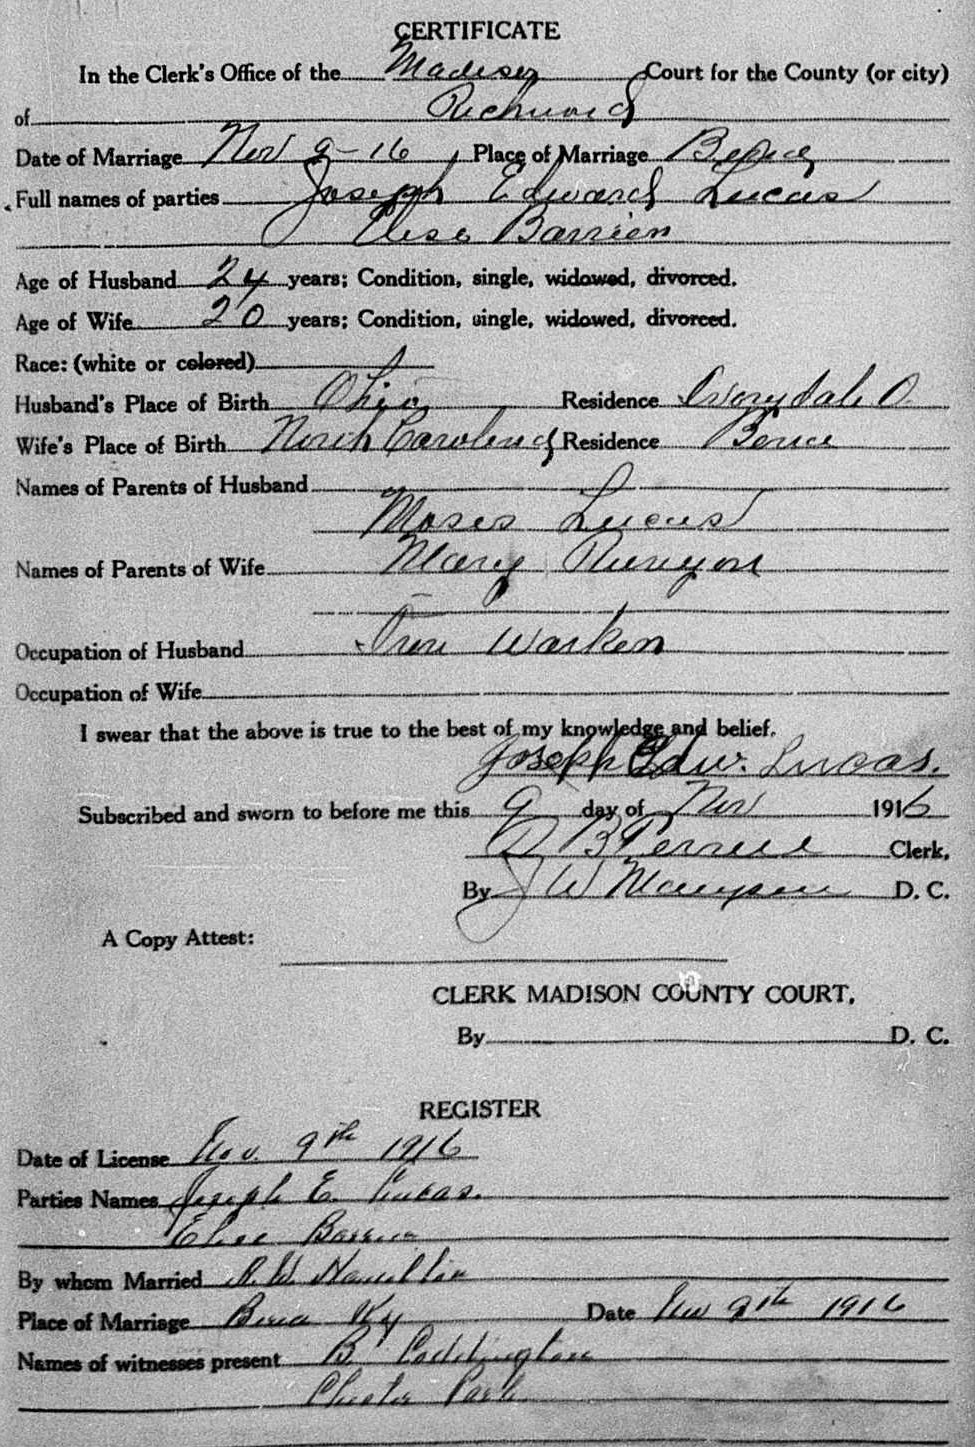 CERTIFICATE
In the Clerk's Office of the Madison Court for the County (or city)
of Richmond
Date of Marriage Nov 9-16 Place of Marriage Berea
Full names of parties Joseph Edward Lucas
Elise Barrien
Age of Husband 24 years; Condition, single, widowed, divorced.
Age of Wife 20 years; Condition, single, widowed, divorced.
Race: (white or colored)
Husband's Place of Birth Ohio Residence Ivorydale O.
Wife's Place of Birth North Carolina Residence Berea
Names of Parents of Husband
Moses Lucas
Names of Parents of Wife Mary Runyon
Occupation of Husband Iron Worker
Occupation of Wife
I swear that the above is true to the best of my knowledge and belief.
Joseph Edw. Lucas.
Subscribed and sworn to before me this 9 day of Nov 1916
B Clerk,
By J W D. C.
A Copy Attest:
CLERK MADISON COUNTY COURT,
By D. C.
REGISTER
Date of License Nov. 9th 1916
Parties Names Joseph E. Lucas.
Elise
By whom Married Hamilton
Place of Marriage Berea Ky Date Nov 9th 1916
Names of witnesses present B Coddington
Chester Park